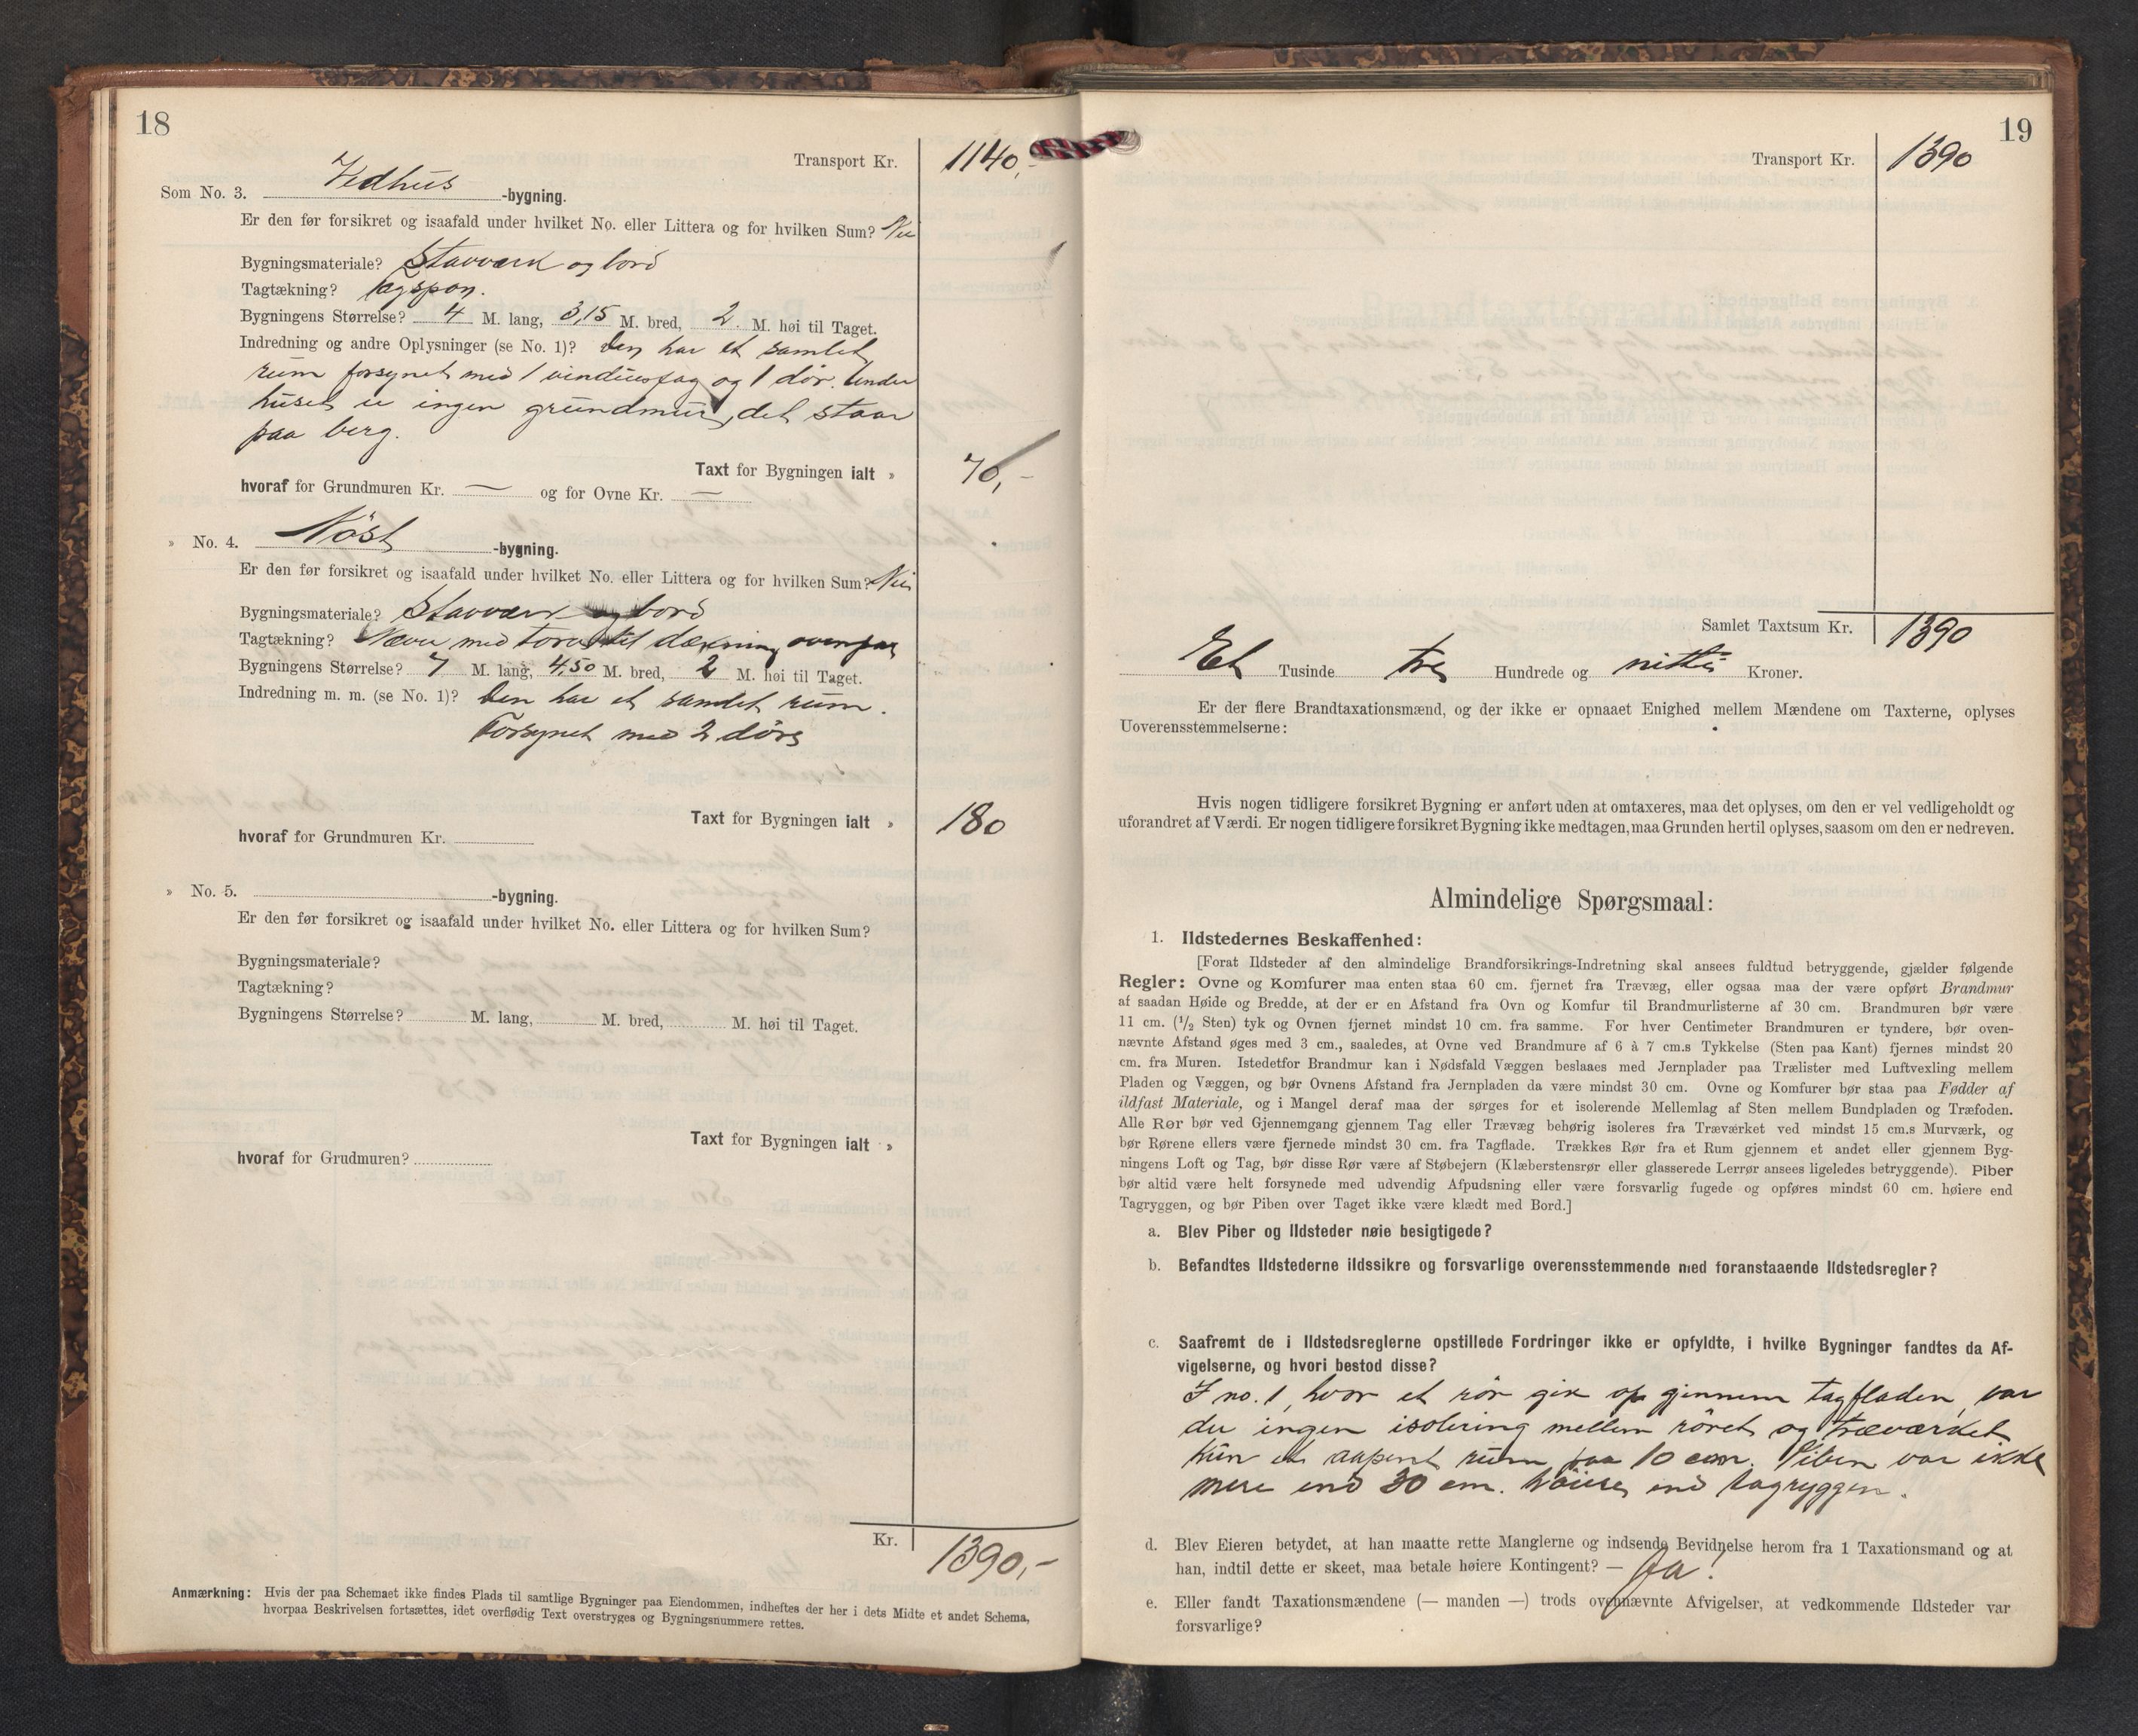 18
Transport Kr. 1140,-
Som No. 3. Vedhus -bygning.
Er den før forsikret og isaafald under hvilket No. eller Littera og for hvilken Sum? Nei
Bygningsmateriale? Stavværk og bord
Tagtækning? tagspon.
Bygningens Størrelse? 4 M. lang, 3,15 M. bred, 2. M. høi til Taget.
Indredning og andre Oplysninger (se No. 1)? Den har et samlet
rum forsynet med 1 vindusfag og 1 dör. Under
huset er ingen grundmur, det staar
paa berg.
Taxt for Bygningen ialt » 70,-
hvoraf for Grundmuren Kr. — og for Ovne Kr. —
» No. 4. Nöst -bygning.
Er den før forsikret og isaafald under hvilket No. eller Littera og for hvilken Sum? Nei
Bygningsmateriale? Stavværk og bord
Tagtækning? Næver med torv til dækning ovenpaa
Bygningens Størrelse? 7 M. lang, 4,50 M. bred, 2 M. høi til Taget.
Indredning m. m. (se No. 1)? Den har et samlet rum.
Forsynet med 2 döre
Taxt for Bygningen ialt » 180
hvoraf for Grundmuren Kr.
» No. 5. -bygning.
Er den før forsikret og isaafald under hvilket No. eller Littera og for hvilken Sum?
Bygningsmateriale?
Tagtækning?
Bygningens Størrelse? M. lang, M. bred, M. høi til Taget.
Taxt for Bygningen ialt »
hvoraf for Grudmuren?
Kr. 1390,-
Anmærkning: Hvis der paa Schemaet ikke findes Plads til samtlige Bygninger paa Eiendommen, indheftes der her i dets Midte et andet Schema,
hvorpaa Beskrivelsen fortsættes, idet overflødig Text overstryges og Bygningsnummere rettes.
19
Transport Kr. 1390
Samlet Taxtsum Kr. 1390
Et Tusinde tre Hundrede og nitti Kroner.
Er der flere Brandtaxationsmænd, og der ikke er opnaaet Enighed mellem Mændene om Taxterne, oplyses
Uoverensstemmelserne:
Hvis nogen tidligere forsikret Bygning er anført uden at omtaxeres, maa det oplyses, om den er vel vedligeholdt og
uforandret af Værdi. Er nogen tidligere forsikret Bygning ikke medtagen, maa Grunden hertil oplyses, saasom om den er nedreven.
Almindelige Spørgsmaal:
1. Ildstedernes Beskaffenhed:
[Forat Ildsteder af den almindelige Brandforsikrings-Indretning skal ansees fuldtud betryggende, gjælder følgende
Regler: Ovne og Komfurer maa enten staa 60 cm. fjernet fra Trævæg, eller ogsaa maa der være opført Brandmur
af saadan Høide og Bredde, at der er en Afstand fra Ovn og Komfur til Brandmurlisterne af 30 cm. Brandmuren bør være
11 cm. (1/2 Sten) tyk og Ovnen fjernet mindst 10 cm. fra samme. For hver Centimeter Brandmuren er tyndere, bør oven-
nævnte Afstand øges med 3 cm., saaledes, at Ovne ved Brandmure af 6 à 7 cm.s Tykkelse (Sten paa Kant) fjernes mindst 20
cm. fra Muren. Istedetfor Brandmur kan i Nødsfald Væggen beslaaes med Jernplader paa Trælister med Luftvexling mellem
Pladen og Væggen, og bør Ovnens Afstand fra Jernpladen da være mindst 30 cm. Ovne og Komfurer bør staa paa Fødder af
ildfast Materiale, og i Mangel deraf maa der sørges for et isolerende Mellemlag af Sten mellem Bundpladen og Træfoden.
Alle Rør bør ved Gjennemgang gjennem Tag eller Trævæg behørig isoleres fra Træværket ved mindst 15 cm.s Murværk, og
bør Rørene ellers være fjernede mindst 30 cm. fra Tagflade. Trækkes Rør fra et Rum gjennem et andet eller gjennem Byg-
ningens Loft og Tag, bør disse Rør være af Støbejern (Klæberstensrør eller glasserede Lerrør ansees ligeledes betryggende). Piber
bør altid være helt forsynede med udvendig Afpudsning eller være forsvarlig fugede og opføres mindst 60 cm. høiere end
Tagryggen, og bør Piben over Taget ikke være klædt med Bord.]
a. Blev Piber og Ildsteder nøie besigtigede?
b. Befandtes Ildstederne ildssikre og forsvarlige overensstemmende med foranstaaende Ildstedsregler?
c. Saafremt de i Ildstedsreglerne opstillede Fordringer ikke er opfyldte, i hvilke Bygninger fandtes da Af-
vigelserne, og hvori bestod disse?
I no. 1, hvor et rör gik op gjennem tagfladen, var
der ingen isolering mellem röret og træværket
kun et aapent rum paa 10 cm. Piben var ikke
mere end 30 cm. höiere end tagryggen.
d. Blev Eieren betydet, at han maatte rette Manglerne og indsende Bevidnelse herom fra 1 Taxationsmand og at
han, indtil dette er skeet, maa betale høiere Kontingent? — Ja!
e. Eller fandt Taxationsmændene (— manden —) trods ovennævnte Afvigelser, at vedkommende Ildsteder var
forsvarlige?